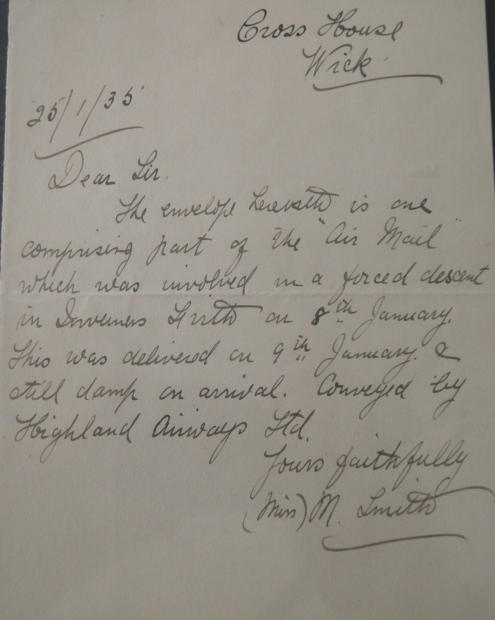 Cross House
Wick
25/1/35
Dear Sir.
The envelope herewith is one
comprising part of the "Air Mail"
which was involved in a forced descent
in Inverness Firth on 8th January.
This was delivered on 9th January. &
still damp on arrival. Conveyed by
Highland Airways Ltd.
Yours faithfully
(Miss) M. Smith